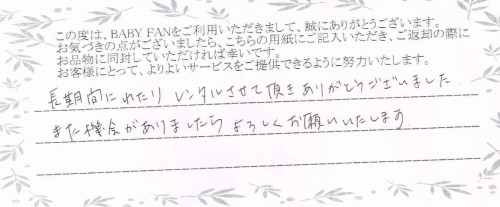 この度は、BABY FANをご利用いただきまして、誠にありがとうございます。
お気づきの点がございましたら、こちらの用紙にご記入いただき、ご返却の際に
お品物に同封していただければ幸いです。
お客様にとって、よりよいサービスをご提供できるように努力いたします。
長期間にわたり レンタルさせて頂きありがとうございました
また機会がありましたら よろしくお願いいたします